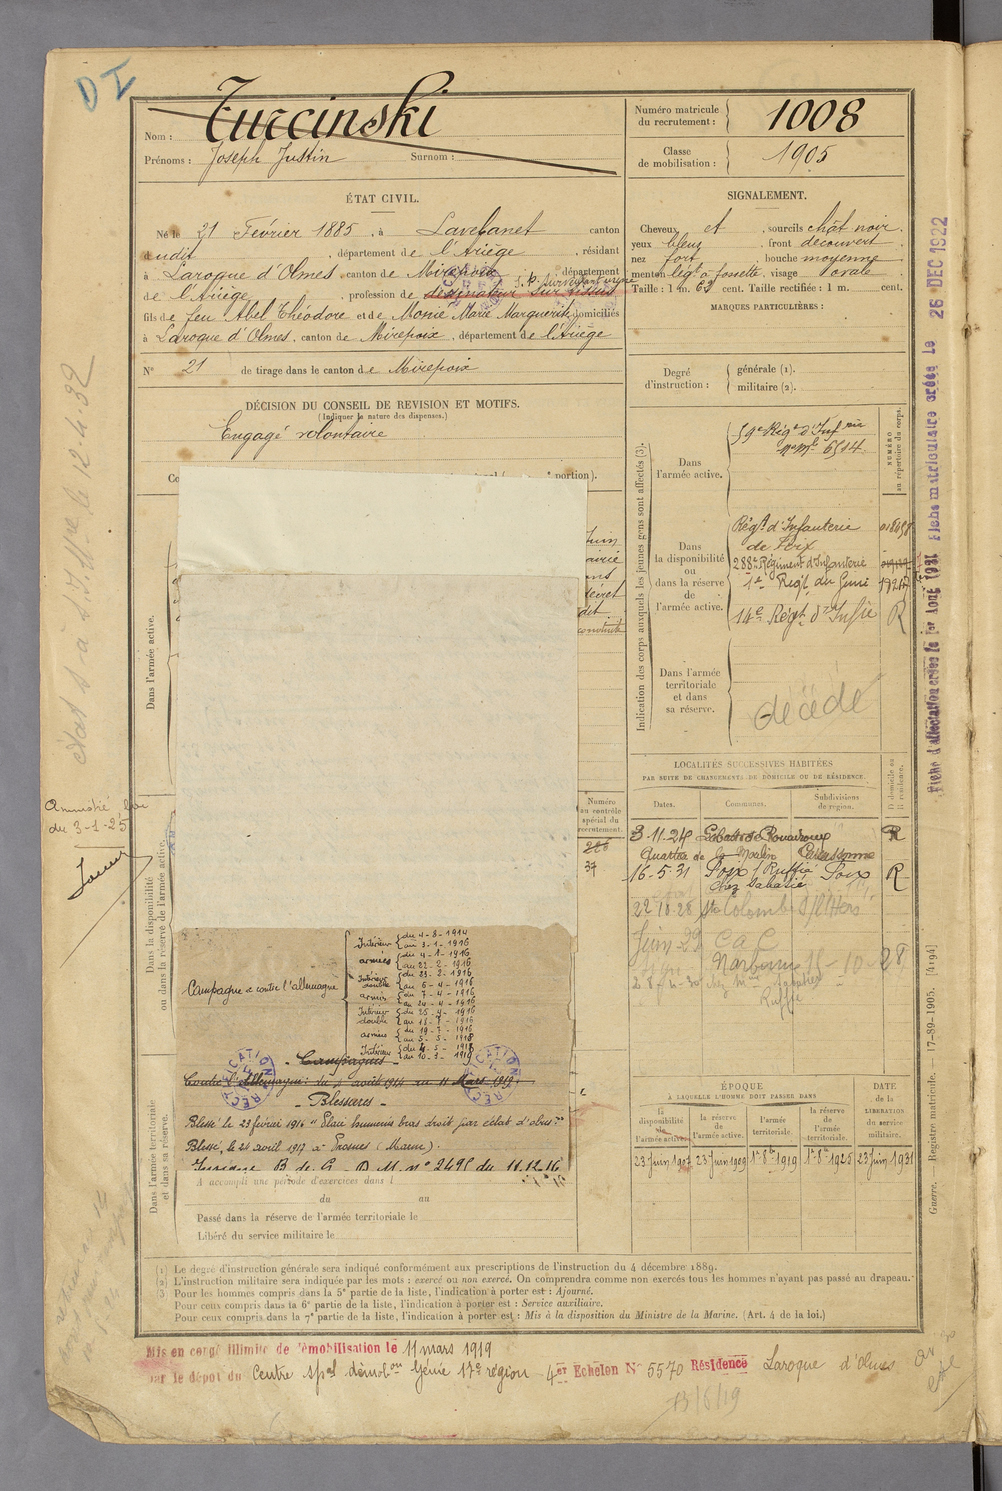 DI
Nom : Turcinski
Prénoms : Joseph Justin Surnom :
Numéro matricule du recrutement : 1008
Classe de mobilisation : 1905
ÉTAT CIVIL.
Né le 21 Février 1885, à Lavelanet canton
dudit, département de l'Ariège, résidant
à Laroque d'Olmes, canton de Mirepoix, département
de l'Ariège, profession de dessinateur sur tissus
fils de feu Abel Théodore et de Monié Marie Marguerite, domiciliés
à Laroque d'Olmes, canton de Mirepoix, département de l'Ariège
N° 21 de tirage dans le canton de Mirepoix
DÉCISION DU CONSEIL DE REVISION ET MOTIFS.
(Indiquer la nature des dispenses.)
Engagé volontaire
portion).
SIGNALEMENT.
Cheveux et, sourcils chât noir
yeux bleus, front découvert
nez fort, bouche moyenne
menton lég. à fossette, visage ovale
Taille : 1 m. 63 cent. Taille rectifiée : 1 m. cent.
MARQUES PARTICULIÈRES :
Degré d'instruction : générale (1).
militaire (2).
Indication des corps auxquels les jeunes gens sont affectés (3).
NUMÉRO au répertoire du corps.
Dans l'armée active.
59e Régt d'Infrie
n° mle 6514
Dans la disponibilité ou dans la réserve de l'armée active.
Régt d'Infanterie
de Foix
288e Régiment d'Infanterie
1er Régt du Génie
14e Régt d'Infie R
Dans l'armée territoriale et dans sa réserve.
décédé
LOCALITÉS SUCCESSIVES HABITÉES
PAR SUITE DE CHANGEMENTS DE DOMICILE OU DE RÉSIDENCE.
Dates. Communes. Subdivisions de région. D domicile ou R résidence.
3-11-24 R
Quartier de le Moulin Carcassonne
16-5-31 Foix / Ruffié Foix R
chez Sabatié
22-10-28 Ste Colombe s/ l'Hers
Juin 29
Narbonne
Ruffié
Numéro au contrôle spécial du recrutement.
37
Dans l'armée active.
Dans la disponibilité ou dans la réserve de l'armée active.
Dans l'armée territoriale et dans sa réserve.
Amnistié Loi
du 3-1-25
Campagne contre l'allemagne
Intérieur du 4-8-1914
au 3-1-1916
armées du 4-1-1916
au 22-2-1916
Intérieur double du 23-2-1916
au 6-4-1916
armées du 7-4-1916
au 24-4-1916
Intérieur double du 25-4-1916
au 18-7-1916
armées du 19-7-1916
au 3-5-1918
Intérieur du 4-5-1918
au 10-3-1919
- Campagnes -
Contre l'Allemagne : du 4 août 1914 au 11 Mars 1919.
RECTIFICATION
- Blessures -
Blessé le 23 février 1916 "Plaie humérus bras droit par éclat d'obus."
Blessé, le 24 avril 1917 à Prosnes (Marne).
B de G. D.M. n° 2495 du 11.12.16
A accompli une période d'exercices dans l
du au
Passé dans la réserve de l'armée territoriale le
Libéré du service militaire le
ÉPOQUE
À LAQUELLE L'HOMME DOIT PASSER DANS
DATE de la LIBÉRATION DU service militaire.
la disponibilité de l'armée active. la réserve de l'armée active. l'armée territoriale. la réserve de l'armée territoriale.
23 Juin 1907 23 Juin 1909 1er 8bre 1919 1er 8bre 1925 23 Juin 1931
(1) Le degré d'instruction générale sera indiqué conformément aux prescriptions de l'instruction du 4 décembre 1889.
(2) L'instruction militaire sera indiquée par les mots : exercé ou non exercé. On comprendra comme non exercés tous les hommes n'ayant pas passé au drapeau.
(3) Pour les hommes compris dans la 5e partie de la liste, l'indication à porter est : Ajourné.
Pour ceux compris dans la 6e partie de la liste, l'indication à porter est : Service auxiliaire.
Pour ceux compris dans la 7e partie de la liste, l'indication à porter est : Mis à la disposition du Ministre de la Marine. (Art. 4 de la loi.)
Mis en congé illimité de démobilisation le 11 mars 1919
par le dépôt du Centre spal démobon Génie 17e région 4er Echelon N° 5570 Résidence Laroque d'Olmes
13/6/19
Fiche d'affectation créée le 1er Août 1931 Fiche matriculaire créée le 26 DEC 1922
Guerre. Registre matricule. — 17-89-1905. [4194]